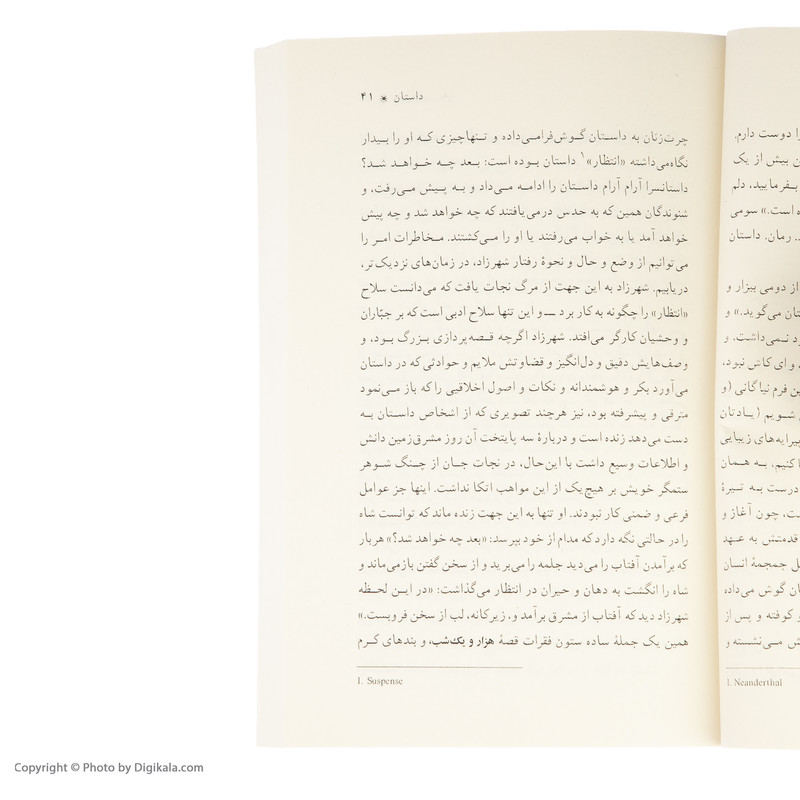 داستان ✶ ۴۱
چرت‌زنان به داستان گوش‌فرامی‌داده و تنهاچیزی که او را بیدار
نگاه‌می‌داشته «انتظار»۱ داستان بوده است: بعد چه خواهد شد؟
داستانسرا آرام آرام داستان را ادامه می‌داد و به پیش می‌رفت، و
شنوندگان همین که به حدس درمی‌یافتند که چه خواهد شد و چه پیش
خواهد آمد یا به خواب می‌رفتند یا او را می‌کشتند. مخاطرات امر را
می‌توانیم از وضع و حال و نحوهٔ رفتار شهرزاد، در زمان‌های نزدیک‌تر،
دریابیم. شهرزاد به این جهت از مرگ نجات یافت که می‌دانست سلاح
«انتظار» را چگونه به کار برد ــ و این تنها سلاح ادبی است که بر جبّاران
و وحشیان کارگر می‌افتد. شهرزاد اگرچه قصه‌پردازی بزرگ بود، و
وصف‌هایش دقیق و دل‌انگیز و قضاوتش ملایم و حوادثی که در داستان
می‌آورد بکر و هوشمندانه و نکات و اصول اخلاقیی را که باز می‌نمود
مترقی و پیشرفته بود، نیز هرچند تصویری که از اشخاص داستان به
دست می‌دهد زنده است و دربارهٔ سه پایتخت آن روز مشرق‌زمین دانش
و اطلاعات وسیع داشت با این‌حال، در نجات جان از چنگ شوهر
ستمگر خویش بر هیچ‌یک از این مواهب اتکا نداشت. اینها جز عوامل
فرعی و ضمنی کار نبودند. او تنها به این جهت زنده ماند که توانست شاه
را در حالتی نگه دارد که مدام از خود بپرسد: «بعد چه خواهد شد؟» هربار
که برآمدن آفتاب را می‌دید جلمه را می‌برید و از سخن گفتن بازمی‌ماند و
شاه را انگشت به دهان و حیران در انتظار می‌گذاشت: «در این لحظه
شهرزاد دید که آفتاب از مشرق برآمد و، زیرکانه، لب از سخن فروبست.»
همین یک جملهٔ ساده ستون فقرات قصهٔ هزار و یک‌شب، و بندهای کرم
1. Suspense
را دوست دارم.
ن بیش از یک
بفرمایید، دلم
ه است.» سومی
. رمان. داستان
از دومی بیزار و
تان می‌گوید.» و
د نمی‌داشت، و
، و ای کاش نبود،
ین فرم نیاگانی (و
شویم (یادتان
پیرایه‌های زیبایی
ا کنیم. به همان
درست به تیرهٔ
ت، چون آغاز و
قدمتش به عهد
ل جمجمهٔ انسان
ان گوش می‌داده
و کوفته و پس از
ش می‌نشسته و
1. Neanderthal
Copyright © Photo by Digikala.com